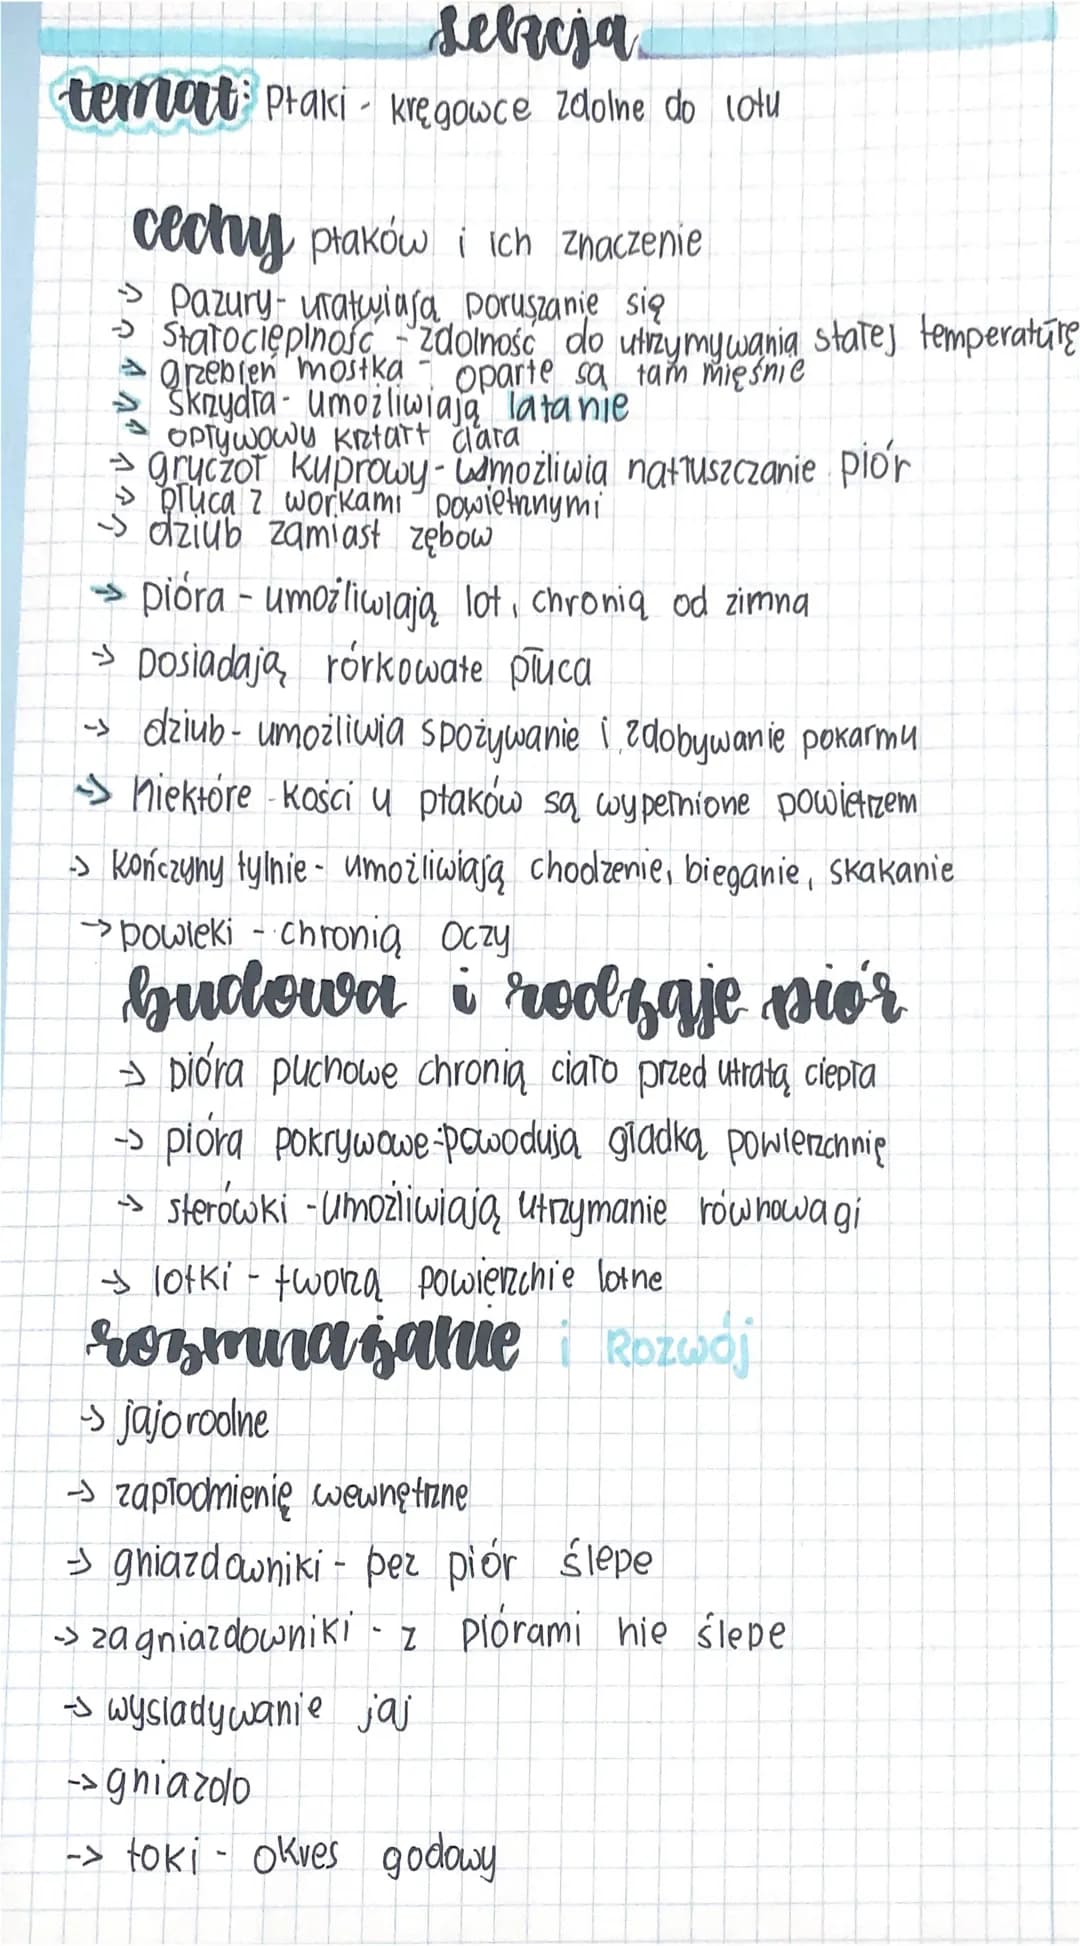 Lekcja
temat: Ptaki - kręgowce zdolne do lotu
cechy ptaków i ich znaczenie
-> Pazury - ułatwiają poruszanie się
-> Stałocieplność - zdolność do utrzymywania stałej temperaturę
-> grzebień mostka - oparte są tam mięśnie
-> Skrzydła - umożliwiają latanie
-> opływowy kształt ciała
-> gruczoł kuprowy - umożliwia natłuszczanie piór
-> płuca z workami powietrznymi
-> dziub zamiast zębów
-> pióra - umożliwiają lot, chronią od zimna
-> posiadają rórkowate płuca
-> dziub - umożliwia spożywanie i zdobywanie pokarmu
-> Niektóre - kości u ptaków są wypełnione powietrzem
-> kończyny tylnie - umożliwiają chodzenie, bieganie, skakanie
-> powieki - chronią oczy
budowa i rodzaje piór
-> pióra puchowe chronią ciało przed utratą ciepła
-> pióra pokrywowe - powodują gładką powierzchnię
-> sterówki - umożliwiają utrzymanie równowagi
-> lotki - tworzą powierzchie lotne
rozmnażanie i Rozwój
-> jajorodne
-> zapłodmienię wewnętrzne
-> gniazdowniki - bez piór ślepe
-> zagniazdowniki - z piórami nie ślepe
-> wysiadywanie jaj
-> gniazdo
-> toki - okres godowy